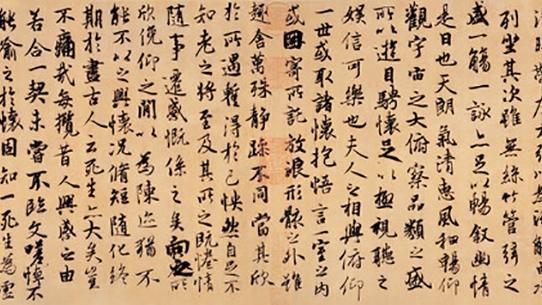 列坐其次雖無絲竹管弦之
盛一觴一詠亦足以暢敘幽情
是日也天朗氣清惠風和暢仰
觀宇宙之大俯察品類之盛
所以遊目騁懷足以極視聽之
娛信可樂也夫人之相與俯仰
一世或取諸懷抱悟言一室之內
或因寄所託放浪形骸之外雖
趣舍萬殊靜躁不同當其欣
於所遇暫得於己怏然自足不
知老之將至及其所之既惓情
隨事遷感慨係之矣向之所
欣俛仰之閒以為陳迹猶不
能不以之興懷況脩短隨化終
期於盡古人云死生亦大矣豈
不痛哉每攬昔人興感之由
若合一契未嘗不臨文嗟悼不
能喻之於懷固知一死生為虛